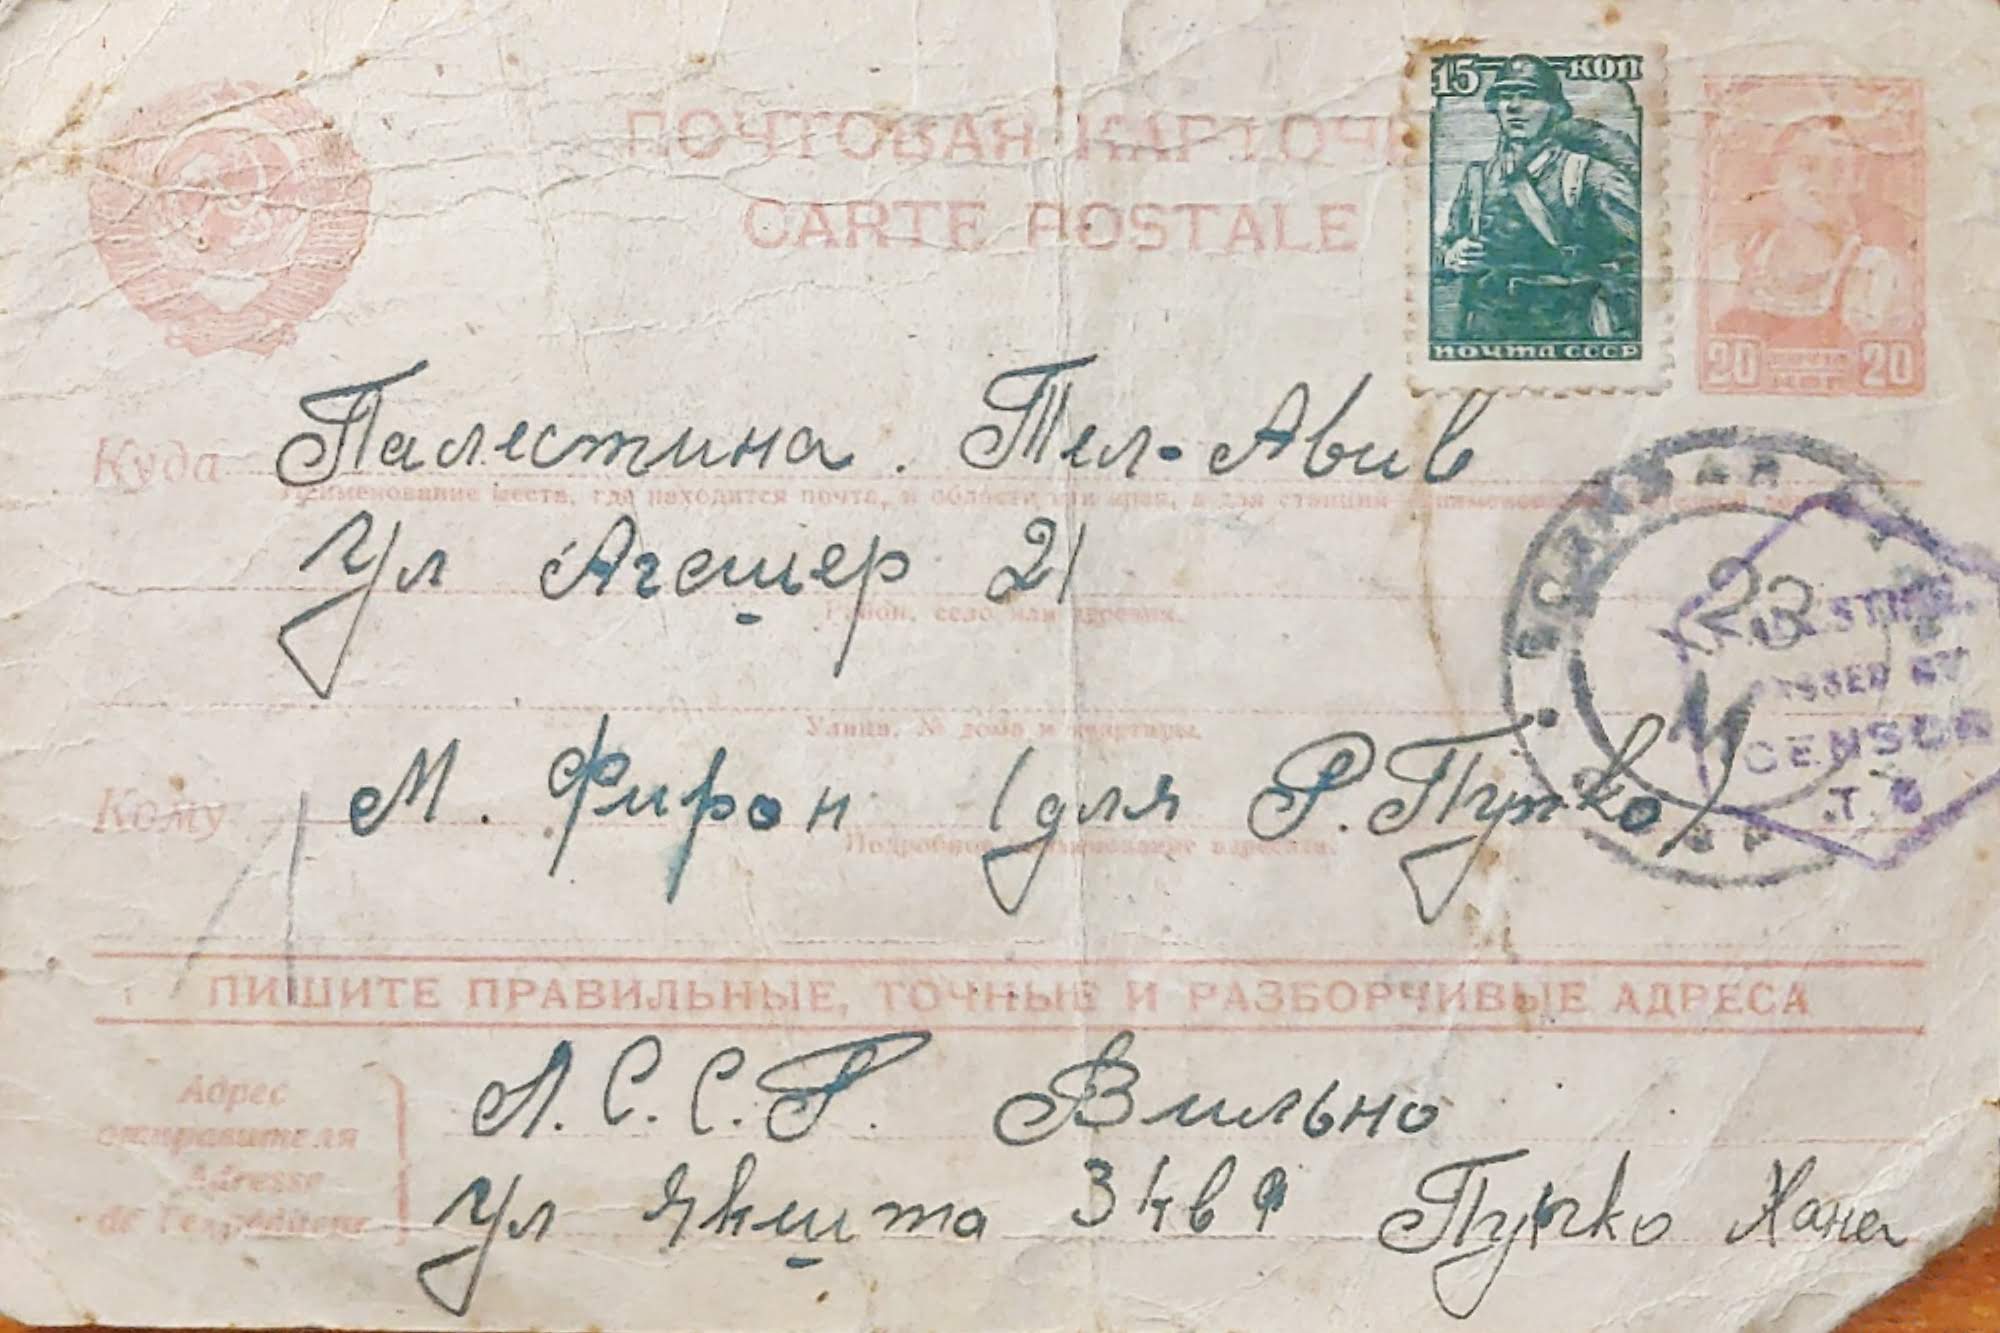 15 КОП
ПОЧТОВАЯ КАРТОЧ
CARTE POSTALE
ПОЧТА СССР
20 КОП 20
Куда Палестина. Тел-Авив
Наименование места, где находится почта, и области или края, а для станций
Ул Агешер 21
Район, село или деревня.
Улица, № дома и квартиры.
23
PALESTINE
PASSED BY
CENSOR
T.
Кому М. Фирон (для Р. Пупко)
Подробное наименование адресата.
ПИШИТЕ ПРАВИЛЬНЫЕ, ТОЧНЫЕ И РАЗБОРЧИВЫЕ АДРЕСА
Адрес
отправителя
Adresse
de l'expéditeur
Л.С.С.Р. Вильно
Ул Якшта 3 кв 9 Пупко Хана